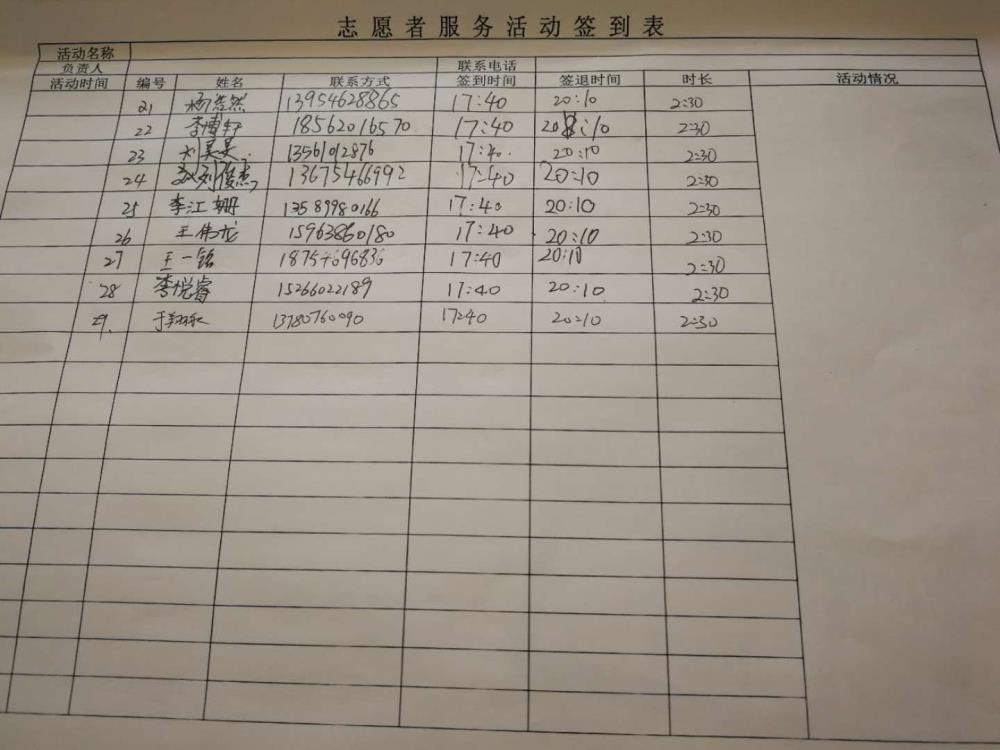 志愿者服务活动签到表
活动名称
负责人 联系电话
活动时间 编号 姓名 联系方式 签到时间 签退时间 时长 活动情况
21 杨浩然 13954628865 17:40 20:10 2:30
22 李博轩 18562016570 17:40 20:10 2:30
23 刘昊昊 13561012876 17:40. 20:10 2:30
24 刘俊杰 13675466992 17:40 20:10 2:30
25 李江姗 13589980166 17:40 20:10 2:30
26 王伟龙 15963860180 17:40 20:10 2:30
27 王一铭 18754696836 17:40 20:10 2:30
28 李悦睿 15266022189 17:40 20:10 2:30
29. 13780760090 17:40 20:10 2:30